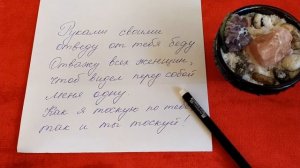 Руками своими
отведу от тебя беду
Отважу всех женщин,
чтоб видел перед собой
меня одну.
Как я тоскую по тебе
так и ты тоскуй!